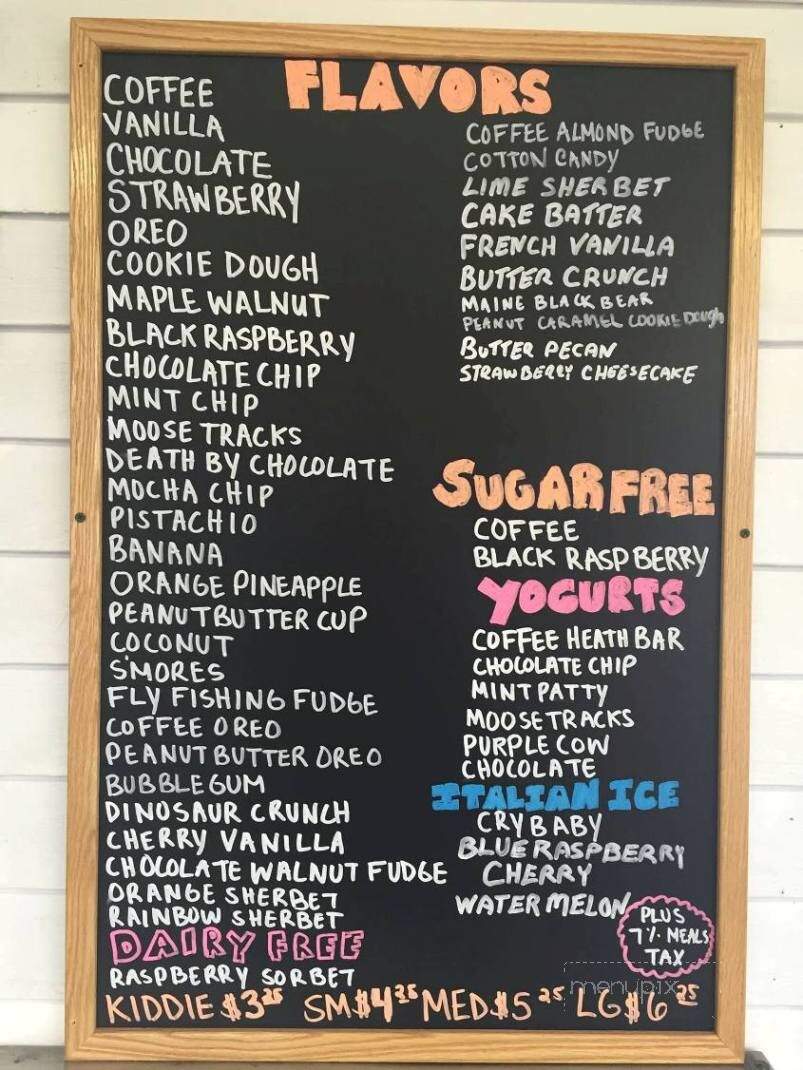 FLAVORS
COFFEE
VANILLA
CHOCOLATE
STRAWBERRY
OREO
COOKIE DOUGH
MAPLE WALNUT
BLACK RASPBERRY
CHOCOLATE CHIP
MINT CHIP
MOOSE TRACKS
DEATH BY CHOCOLATE
MOCHA CHIP
PISTACHIO
BANANA
ORANGE PINEAPPLE
PEANUT BUTTER CUP
COCONUT
S'MORES
FLY FISHING FUDGE
COFFEE OREO
PEANUT BUTTER OREO
BUBBLEGUM
DINOSAUR CRUNCH
CHERRY VANILLA
CHOCOLATE WALNUT FUDGE
ORANGE SHERBET
RAINBOW SHERBET
DAIRY FREE
RASPBERRY SORBET
COFFEE ALMOND FUDGE
COTTON CANDY
LIME SHERBET
CAKE BATTER
FRENCH VANILLA
BUTTER CRUNCH
MAINE BLACK BEAR
PEANUT CARAMEL COOKIE DOUGh
BUTTER PECAN
STRAWBERRY CHEESECAKE
SUGAR FREE
COFFEE
BLACK RASPBERRY
YOGURTS
COFFEE HEATH BAR
CHOCOLATE CHIP
MINT PATTY
MOOSETRACKS
PURPLE COW
CHOCOLATE
ITALIAN ICE
CRYBABY
BLUE RASPBERRY
CHERRY
WATERMELON
PLUS
7% MEALS
TAX
KIDDIE $3.25 SM $4.25 MED $5.25 LG $6.25
menupix